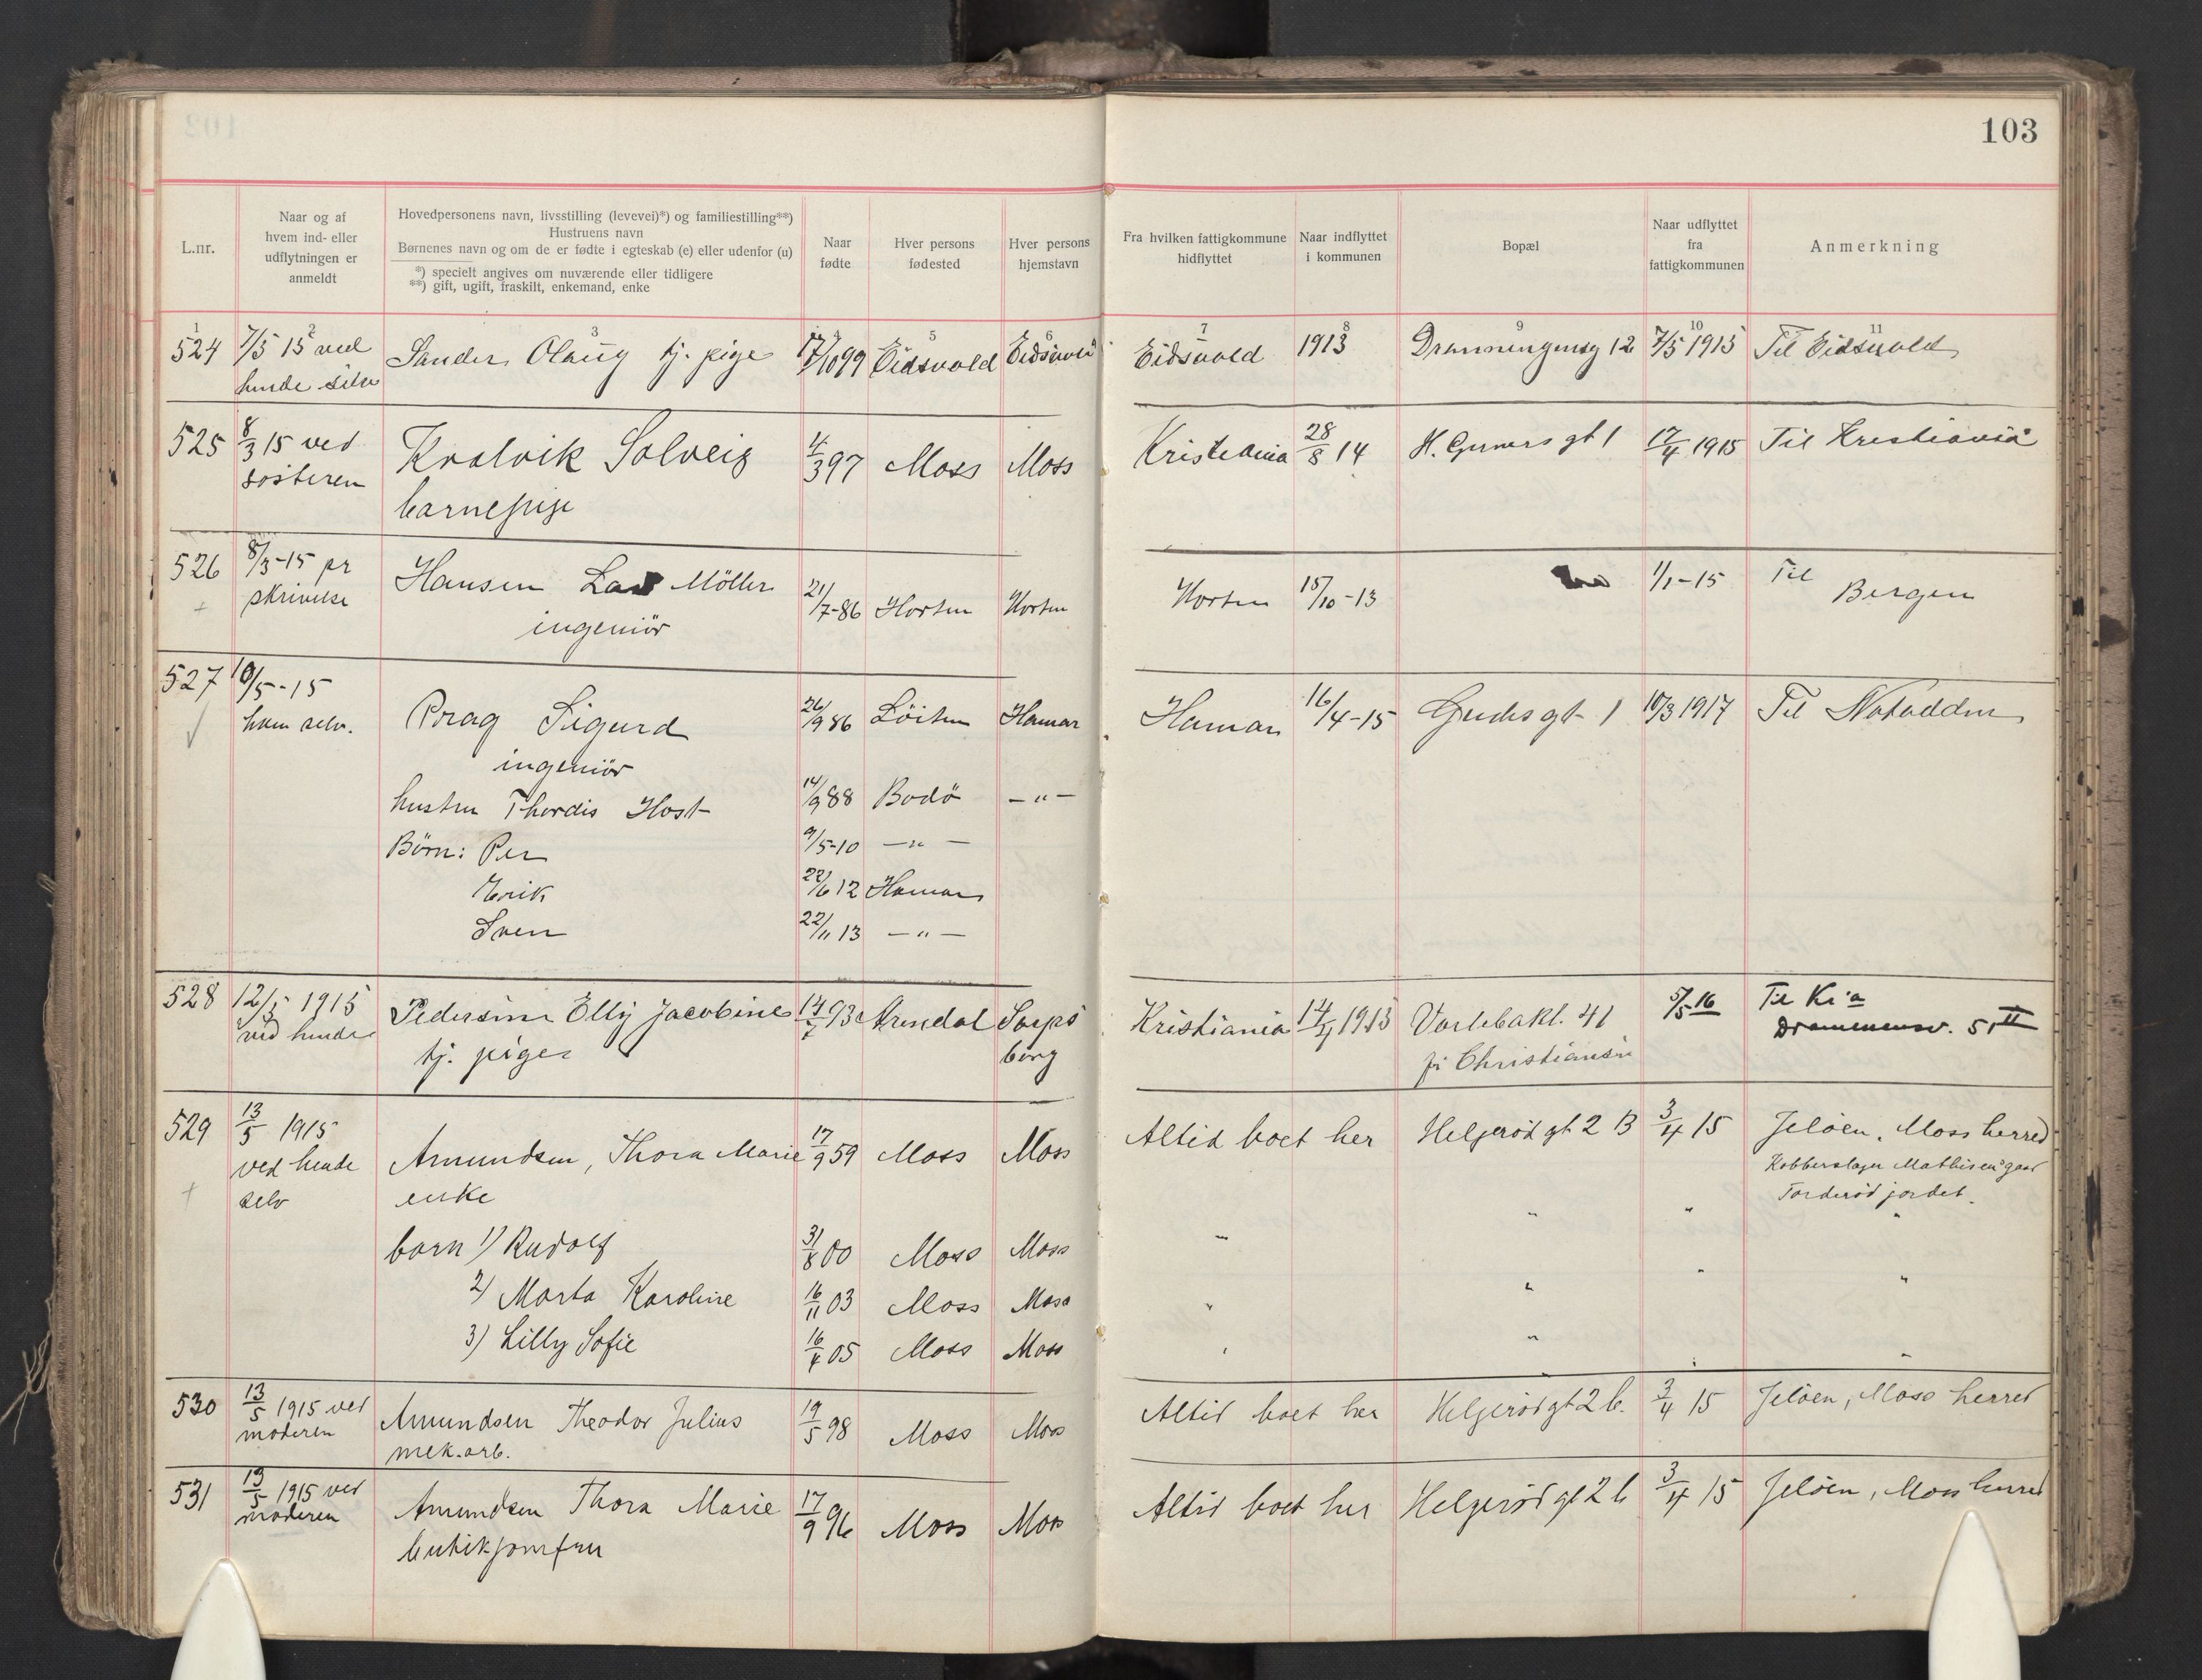 103
L.nr.
Naar og af
hvem ind- eller
udflytningen er
anmeldt
Hovedpersonens navn, livsstilling (levevei)*) og familiestilling**)
Hustruens navn
Børnenes navn og om de er fødte i egteskab (e) eller udenfor (u)
*) specielt angives om nuværende eller tidligere
**) gift, ugift, fraskilt, enkemand, enke
Naar
fødte
Hver persons
fødested
Hver persons
hjemstavn
Fra hvilken fattigkommune
hidflyttet
Naar indflyttet
i kommunen
Bopæl
Naar udflyttet
fra
fattigkommunen
Anmerkning
1 2 3 4 5 6 7 8 9 10 11
524 7/5 15 ved Sander Olaug tj. pige 17/10 99 Eidsvold Eidsvold Eidsvold 1913 12 7/5 1915 Til Eidsvold
hende selv
525 8/3 15 ved Kralvik Solveig 4/3 97 Moss Moss Kristiania 28/8 14 H. gt 1 17/4 1915 Til Kristiania
søsteren
barnepige
526 8/3-15 pr Hansen Møller 21/7-86 Horten Horten Horten 15/10-13 1/1-15 Til Bergen
skrivelse
ingeniør
527 10/5-15
ham selv. Prag Sigurd 26/9 86 Löiten Hamar Hamar 16/4-15 gt 1 10/3 1917 Til Notodden
ingeniør
hustru Thordis Høst 14/9 88 Bodö - " -
Børn: Per 9/5-10 - " -
Erik 22/6 12 Hamar
Sven 22/11 13 - " -
528 12/5 1915 Pedersen Elly Jacobine 14/7 93 Arendal Sarps Kristiania 14/4 1913 Varlebakk. 41 5/5 16 Til Kr.a
ved hende tj. pige borg Christiansen Drammensv. 51 II
529 13/5 1915
ved hende Amundsen, Thora Marie 17/9 59 Moss Moss Altid boet her Helgerød gt 2 B 3/4 15 Jeløen, Moss herred
selv enke Kobberslager Mathisens gaard
Torderød jordet.
barn 1) Rudolf 31/8 00 Moss Moss " " " "
2) Marta Karoline 16/11 03 Moss Moss " " " "
3) Lilly Sofie 16/4 05 Moss Moss " " " "
530 13/5 1915 ved Amundsen Theodor Julius 19/5 98 Moss Moss Altid boet her Helgerødgt 2 b. 3/4 15 Jeløen, Moss herred
moderen mek. arb.
531 13/5 1915 ved Amundsen Thora Marie 17/9 96 Moss Moss Altid boet her Helgerød gt 2 b 3/4 15 Jeløen, Moss herred
moderen
butikjomfru